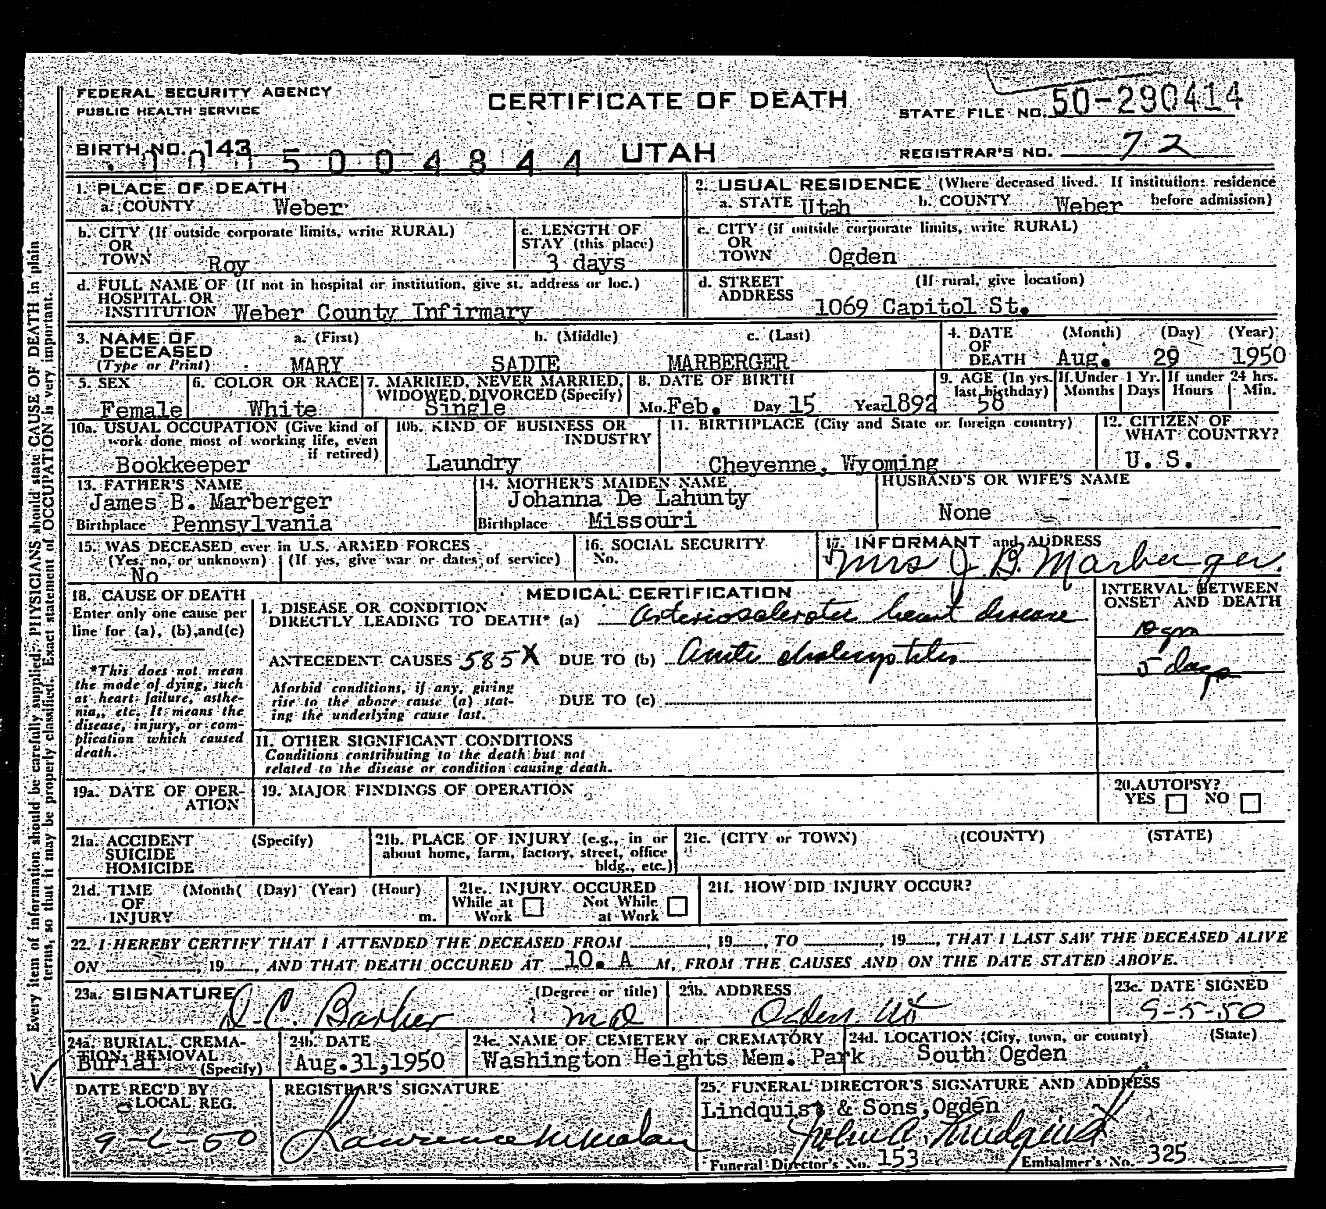 FEDERAL SECURITY AGENCY
PUBLIC HEALTH SERVICE
CERTIFICATE OF DEATH
STATE FILE NO. 50-290414
BIRTH NO. 143
1 5 0 0 4 8 4 4
UTAH
REGISTRAR'S NO. 72
1. PLACE OF DEATH
a. COUNTY Weber
2. USUAL RESIDENCE (Where deceased lived. If institution: residence before admission)
a. STATE Utah b. COUNTY Weber
b. CITY (If outside corporate limits, write RURAL)
OR
TOWN Roy
c. LENGTH OF
STAY (this place)
3 days
c. CITY (if outside corporate limits, write RURAL)
OR
TOWN Ogden
d. FULL NAME OF (If not in hospital or institution, give st. address or loc.)
HOSPITAL OR
INSTITUTION Weber County Infirmary
d. STREET (If rural, give location)
ADDRESS 1069 Capitol St.
3. NAME OF a. (First) b. (Middle) c. (Last)
DECEASED
(Type or Print) MARY SADIE MARBERGER
4. DATE (Month) (Day) (Year)
OF
DEATH Aug. 29 1950
5. SEX
Female
6. COLOR OR RACE
White
7. MARRIED, NEVER MARRIED,
WIDOWED, DIVORCED (Specify)
Single
8. DATE OF BIRTH
Mo. Feb. Day 15 Year 1892
9. AGE (In yrs. last birthday)
58
If Under 1 Yr.
Months Days
If under 24 hrs.
Hours Min.
10a. USUAL OCCUPATION (Give kind of
work done most of working life, even
if retired)
Bookkeeper
10b. KIND OF BUSINESS OR
INDUSTRY
Laundry
11. BIRTHPLACE (City and State or foreign country)
Cheyenne, Wyoming
12. CITIZEN OF
WHAT COUNTRY?
U. S.
13. FATHER'S NAME
James B. Marberger
Birthplace Pennsylvania
14. MOTHER'S MAIDEN NAME
Johanna De Lahunty
Birthplace Missouri
HUSBAND'S OR WIFE'S NAME
None
15. WAS DECEASED ever in U.S. ARMED FORCES
(Yes, no, or unknown) (If yes, give war or dates of service)
No
16. SOCIAL SECURITY
No.
17. INFORMANT and ADDRESS
Mrs J. B. Marberger.
18. CAUSE OF DEATH
Enter only one cause per
line for (a), (b), and (c)
*This does not mean
the mode of dying, such
as heart failure, asthe-
nia, etc. It means the
disease, injury, or com-
plication which caused
death.
MEDICAL CERTIFICATION
I. DISEASE OR CONDITION
DIRECTLY LEADING TO DEATH* (a) Arteriosclerotic heart disease
ANTECEDENT CAUSES 585X DUE TO (b) Acute cholecystitis
Morbid conditions, if any, giving
rise to the above cause (a) stat-
ing the underlying cause last.
DUE TO (c)
II. OTHER SIGNIFICANT CONDITIONS
Conditions contributing to the death but not
related to the disease or condition causing death.
INTERVAL BETWEEN
ONSET AND DEATH
5 days
19a. DATE OF OPER-
ATION
19. MAJOR FINDINGS OF OPERATION
20. AUTOPSY?
YES NO
21a. ACCIDENT (Specify)
SUICIDE
HOMICIDE
21b. PLACE OF INJURY (e.g., in or
about home, farm, factory, street, office
bldg., etc.)
21c. (CITY or TOWN) (COUNTY) (STATE)
21d. TIME (Month( (Day) (Year) (Hour)
OF
INJURY m.
21e. INJURY OCCURED
While at Work Not While at Work
21f. HOW DID INJURY OCCUR?
22. I HEREBY CERTIFY THAT I ATTENDED THE DECEASED FROM , 19 , TO , 19 , THAT I LAST SAW THE DECEASED ALIVE
ON , 19 , AND THAT DEATH OCCURED AT 10. A M, FROM THE CAUSES AND ON THE DATE STATED ABOVE.
23a. SIGNATURE (Degree or title)
D. C. Barker MD
23b. ADDRESS
Ogden Ut
23c. DATE SIGNED
9-5-50
24a. BURIAL, CREMA-
TION, REMOVAL
Burial (Specify)
24b. DATE
Aug. 31, 1950
24c. NAME OF CEMETERY or CREMATORY
Washington Heights Mem. Park
24d. LOCATION (City, town, or county) (State)
South Ogden
DATE REC'D BY
LOCAL REG.
9-6-50
REGISTRAR'S SIGNATURE
Lawrence
25. FUNERAL DIRECTOR'S SIGNATURE AND ADDRESS
Lindquist & Sons, Ogden
John A. Lindquist
Funeral Director's No. 153 Embalmer's No. 325
Every item of information should be carefully supplied. PHYSICIANS should state CAUSE OF DEATH in plain
terms, so that it may be properly classified. Exact statement of OCCUPATION is very important.